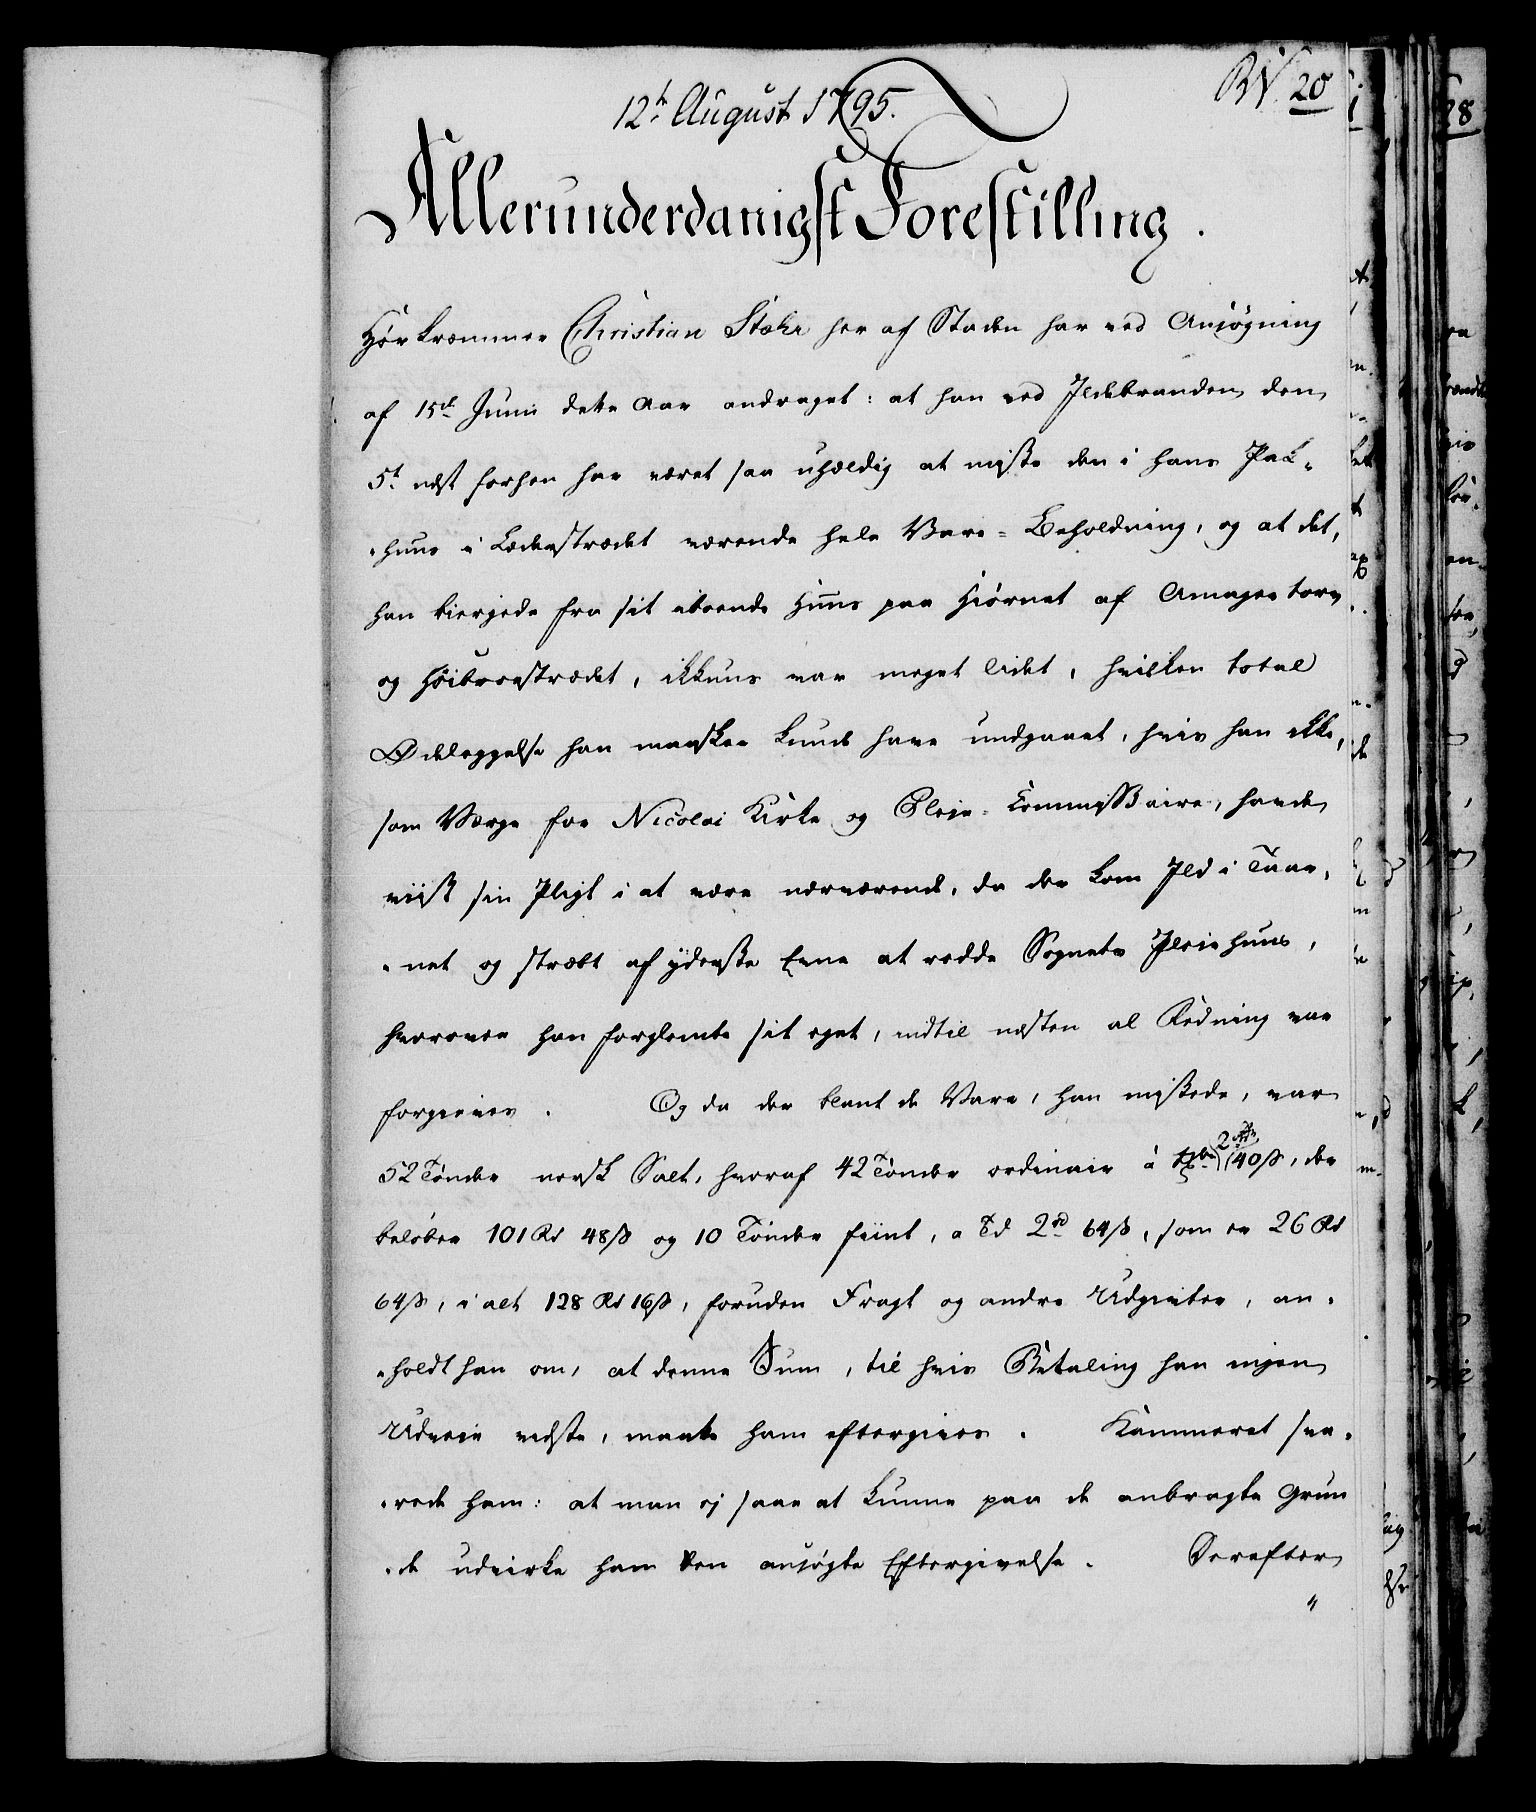 12te August 1795.
RN 20
Allerunderdanigst Forestilling.
Hørkræmmer Christian Stæhr her af Staden har ved Ansøgning
af 15de Junii dette Aar andraget: at han ved Ildebranden den
5te næst forhen har været saa uheldig at miste den i hans Pak-
huus i Læderstrædet værende hele Vare-Beholdning, og at det,
han biergede fra sit iboende Huus paa Hiørnet af Amagertorv
og Høibroestrædet, ikkuns var meget lidet, hvilken total
Ødeleggelse han maaskee kunde have undgaaet, hvis han ikke,
som Værge for Nicolai Kirke og Pleje-Commissaire, havde
viist sin Pligt i at være nærværende, da der kom Ild i Taar-
net og stræbt af yderste Evne at redde Sognets Pleiehuus,
hvorover han forglemte sit eget, indtil næsten al Redning var
forgieves. Og da der blant de Vare, han mistede, var
52 Tønder norsk Salt, hvoraf 42 Tønder ordinair à 2 Rd 40 ß, der
beløber 101 Rd 48 ß og 10 Tønder fiint, a Td 2 rd 64 ß, som er 26 Rd
64 ß, i alt 128 Rd 16 ß, foruden Fragt og andre Udgivter, an-
holdt han om, at denne Sum, til hvis Betaling han ingen
Udveie vidste, maatte ham eftergives. Kammeret sva-
rede ham: at man ej saae at kunne paa de anbragte Grun
de udvirke ham den ansøgte Eftergivelse. Derefter